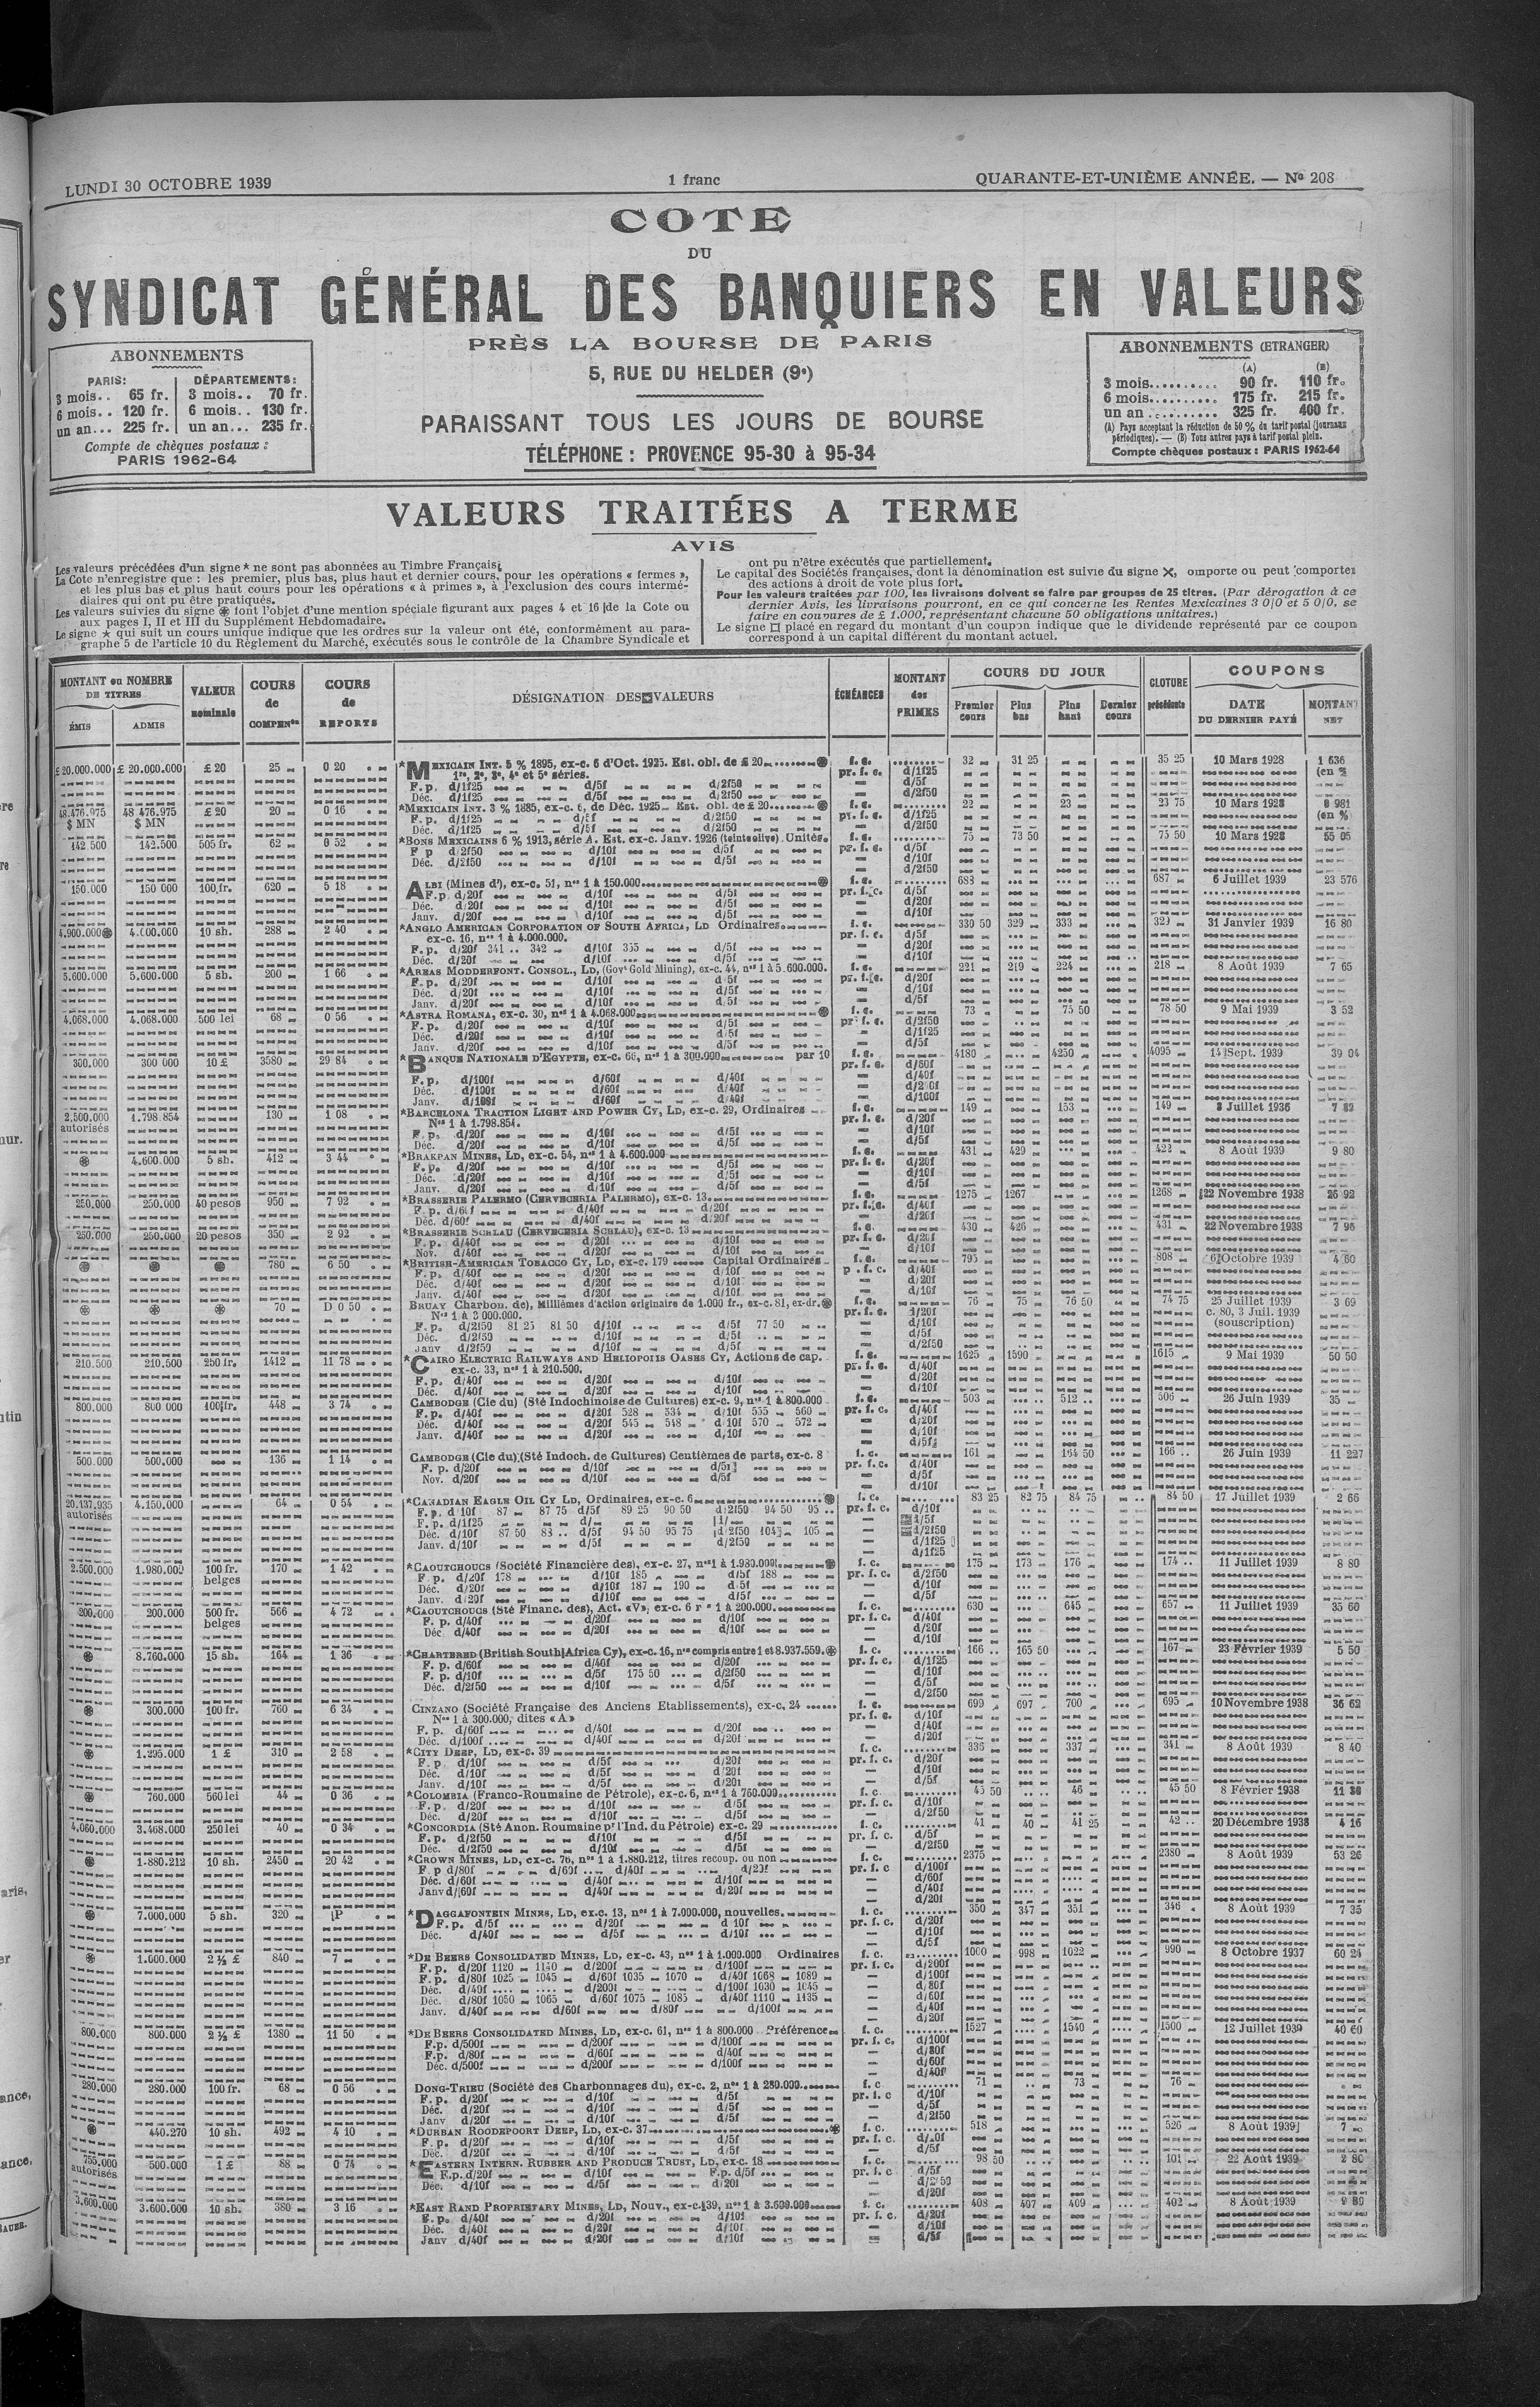 LUNDI 30 OCTOBRE 1939
1 franc
QUARANTE-ET-UNIÈME ANNÉE. — No 208
COTE
DU
SYNDICAT GÉNÉRAL DES BANQUIERS EN VALEURS
PRÈS LA BOURSE DE PARIS
5, RUE DU HELDER (9e)
PARAISSANT TOUS LES JOURS DE BOURSE
TÉLÉPHONE : PROVENCE 95-30 à 95-34
ABONNEMENTS
PARIS: DÉPARTEMENTS:
3 mois.. 65 fr. 3 mois.. 70 fr.
6 mois.. 120 fr. 6 mois.. 130 fr.
un an... 225 fr. un an... 235 fr.
Compte de chèques postaux :
PARIS 1962-64
ABONNEMENTS (ETRANGER)
(A) (B)
3 mois.......... 90 fr. 110 fr.
6 mois.......... 175 fr. 215 fr.
un an .......... 325 fr. 400 fr.
(A) Pays acceptant la réduction de 50 % du tarif postal (journaux
périodiques). — (B) Tous autres pays à tarif postal plein.
Compte chèques postaux : PARIS 1962-64
VALEURS TRAITÉES A TERME
AVIS
Les valeurs précédées d'un signe * ne sont pas abonnées au Timbre Français.
La Cote n'enregistre que : les premier, plus bas, plus haut et dernier cours, pour les opérations « fermes »,
et les plus bas et plus haut cours pour les opérations « à primes », à l'exclusion des cours intermé-
diaires qui ont pu être pratiqués.
Les valeurs suivies du signe ⊛ font l'objet d'une mention spéciale figurant aux pages 4 et 16 de la Cote ou
aux pages I, II et III du Supplément Hebdomadaire.
Le signe ★ qui suit un cours unique indique que les ordres sur la valeur ont été, conformément au para-
graphe 5 de l'article 10 du Règlement du Marché, exécutés sous le contrôle de la Chambre Syndicale et
ont pu n'être exécutés que partiellement.
Le capital des Sociétés françaises, dont la dénomination est suivie du signe ✕, omporte ou peut comporter
des actions à droit de vote plus fort.
Pour les valeurs traitées par 100, les livraisons doivent se faire par groupes de 25 titres. (Par dérogation à ce
dernier Avis, les livraisons pourront, en ce qui concerne les Rentes Mexicaines 3 0/0 et 5 0/0, se
faire en coupures de £ 1.000, représentant chacune 50 obligations unitaires.)
Le signe □ placé en regard du montant d'un coupon indique que le dividende représenté par ce coupon
correspond à un capital différent du montant actuel.
MONTANT ou NOMBRE DE TITRES
ÉMIS ADMIS
VALEUR nominale
COURS de COMPENon
COURS de REPORTS
DÉSIGNATION DES VALEURS
ÉCHÉANCES
MONTANT des PRIMES
COURS DU JOUR
Premier cours Plus bas Plus haut Dernier cours
CLOTURE précédente
COUPONS
DATE DU DERNIER PAYÉ MONTANT NET
£ 20.000.000 £ 20.000.000 £ 20 25 0 20 *MEXICAIN INT. 5 % 1895, ex-c. 6 d'Oct. 1925. Est. obl. de £ 20 ⊛ f. c. 32 31 25 35 25 10 Mars 1928 1 636
1re, 2e, 3e, 4e et 5e séries. pr. f. c. d/1f25 (en %)
F.p. d/1f25 d/5f d/2f50 d/5f
Déc. d/1f25 d/5f d/2f50 d/2f50
48.476.975 48 476.975 £ 20 20 0 16 *MEXICAIN INT. 3 % 1885, ex-c. 6, de Déc. 1925 Est. obl. de £ 20 ⊛ f. c. 22 23 23 75 10 Mars 1928 0 981
$ MN $ MN F. p. d/1f25 d/5f d/2f50 pr. f. c. d/1f25 (en %)
Déc. d/1f25 d/5f d/2f50 d/2f50
142.500 142.500 505 fr. 62 0 52 *BONS MEXICAINS 6 % 1913, série A. Est. ex-c. Janv. 1926 (teinte olive). Unités. f. c. 75 73 50 75 50 10 Mars 1928 55 05
F p d/2f50 d/10f d/5f pr. f. c. d/5f
Déc. d/2f50 d/10f d/5f d/10f
d/2f50
150.000 150 000 100 fr. 620 5 18 ALBI (Mines d'), ex-c. 51, nos 1 à 150.000 ⊛ f. c. 688 687 6 Juillet 1939 23 576
F.p d/20f d/10f d/5f pr. f. c. d/5f
Déc. d/20f d/10f d/5f d/20f
Janv. d/20f d/10f d/5f d/10f
4.900.000⊛ 4.000.000 10 sh. 288 2 40 *ANGLO AMERICAN CORPORATION OF SOUTH AFRICA, LD Ordinaires f. c. 330 50 329 333 329 31 Janvier 1939 16 80
ex-c. 16, nos 1 à 4.000.000. pr. f. c. d/5f
F. p. d/20f 341 .. 342 d/10f 355 d/5f d/20f
Déc. d/20f d/10f d/5f d/10f
5.600.000 5.600.000 5 sh. 200 1 66 *AREAS MODDERFONT. CONSOL., LD, (Govt Gold Mining), ex-c. 44, nos 1 à 5.600.000. f. c. 221 219 224 218 8 Août 1939 7 65
F. p. d/20f d/10f d/5f pr. f. c. d/20f
Déc. d/20f d/10f d/5f d/10f
Janv. d/20f d/10f d/5f d/5f
4.068.000 4.068.000 500 lei 68 0 56 *ASTRA ROMANA, ex-c. 30, nos 1 à 4.068.000 ⊛ f. c. 73 75 50 78 50 9 Mai 1939 3 52
F. p. d/20f d/10f d/5f pr. f. c. d/2f50
Déc. d/20f d/10f d/5f d/1f25
Janv. d/20f d/10f d/5f d/5f
300.000 300 000 10 £ 3580 29 84 *BANQUE NATIONALE D'EGYPTE, ex-c. 66, nos 1 à 300.000 par 10 f. c. 4180 4250 4095 14 Sept. 1939 39 04
pr. f. c. d/60f
F. p. d/100f d/60f d/40f d/40f
Déc. d/100f d/60f d/40f d/20f
Janv. d/100f d/60f d/40f d/100f
2.500.000 1.798 854 130 1 08 *BARCELONA TRACTION LIGHT AND POWER CY, LD, ex-c. 29, Ordinaires f. c. 149 153 149 3 Juillet 1936 7 82
autorisés Nos 1 à 1.798.854. pr. f. c. d/20f
F. p. d/20f d/10f d/5f d/10f
Déc. d/20f d/10f d/5f d/5f
⊛ 4.600.000 5 sh. 412 3 44 *BRAKPAN MINES, LD, ex-c. 54, nos 1 à 4.600.000 f. c. 431 429 422 8 Août 1939 9 80
F. p. d/20f d/10f d/5f pr. f. c. d/20f
Déc. d/20f d/10f d/5f d/10f
Janv. d/20f d/10f d/5f d/5f
250.000 250.000 40 pesos 950 7 92 *BRASSERIE PALERMO (CERVECERIA PALERMO), ex-c. 13 f. c. 1275 1267 1268 22 Novembre 1938 26 92
F. p. d/60f d/40f d/20f pr. f. c. d/40f
Déc. d/60f d/40f d/20f d/20f
250.000 250.000 20 pesos 350 2 92 *BRASSERIE SCHLAU (CERVECERIA SCHLAU), ex-c. 13 f. c. 430 426 431 22 Novembre 1938 7 96
F. p. d/40f d/20f d/10f pr. f. c. d/20f
Nov. d/40f d/20f d/10f d/10f
⊛ ⊛ ⊛ 780 6 50 *BRITISH-AMERICAN TOBACCO CY, LD, ex-c. 179 Capital Ordinaires f. c. 795 808 6 Octobre 1939 4 60
F. p. d/40f d/20f d/10f p . f. c. d/40f
Déc. d/40f d/20f d/10f d/20f
Janv. d/40f d/20f d/10f d/10f
⊛ ⊛ ⊛ 70 D 0 50 BRUAY Charbon. de), Millièmes d'action originaire de 1.000 fr., ex-c. 81, ex-dr. ⊛ f. c. 76 75 76 50 74 75 25 Juillet 1939 3 69
Nos 1 à 3 000.000. pr. f. c. d/20f c. 80, 3 Juil. 1939
F. p. d/2f50 81 25 81 50 d/10f d/5f 77 50 d/10f (souscription)
Déc. d/2f50 d/10f d/5f d/5f
Janv d/2f50 d/10f d/5f d/2f50
210.500 210.500 250 fr. 1412 11 78 *CAIRO ELECTRIC RAILWAYS AND HELIOPOLIS OASES CY, Actions de cap. f. c. 1625 1590 1615 9 Mai 1939 50 50
ex-c. 33, nos 1 à 210.500. pr. f. c. d/40f
F. p. d/40f d/20f d/10f d/20f
Déc. d/40f d/20f d/10f d/10f
800.000 800 000 100 fr. 448 3 74 CAMBODGE (Cie du) (Sté Indochinoise de Cultures) ex-c. 9, nos 1 à 800.000 f. c. 503 512 506 26 Juin 1939 35
F. p. d/40f d/20f 528 534 d/10f 555 560 pr. f. c. d/40f
Déc. d/40f d/20f 545 548 d 10f 570 572 d/20f
Janv. d/40f d/20f d/10f d/10f
d/5f
500.000 500.000 136 1 14 CAMBODGE (Cie du) (Sté Indoch. de Cultures) Centièmes de parts, ex-c. 8 f. c. 161 164 50 166 26 Juin 1939 11 227
F. p. d/20f d/10f d/5f pr. f. c. d/40f
Nov. d/20f d/10f d/5f d/5f
d/10f
20.137.935 4.150.000 64 0 54 *CANADIAN EAGLE OIL CY LD, Ordinaires, ex-c. 6 ⊛ f. c. 83 25 82 75 84 75 84 50 17 Juillet 1939 2 66
autorisés F. p. d 10f 87 87 75 d/5f 89 25 90 50 d/2f50 94 50 95 .. pr. f. c. d/10f
F. p. d/1f25 d/5f
Déc. d/10f 87 50 88 .. d/5f 94 50 95 75 d 2f50 104 105 d/2f50
Janv. d/10f d/5f d/2f50 d/1f25
d/1f25
2.500.000 1.980.000 100 fr. 170 1 42 *CAOUTCHOUCS (Société Financière des), ex-c. 27, nos 1 à 1.980.000 ⊛ f. c. 175 173 176 174 11 Juillet 1939 8 80
belges F p. d/20f 178 d/10f 185 d/5f 188 pr. f. c. d/2f50
Déc. d/20f d/10f 187 190 d 5f d/10f
Janv. d/20f d/10f d/5f d/5f
200.000 200.000 500 fr. 566 4 72 *CAOUTCHOUCS (Sté Financ. des), Act. «V», ex-c. 6 1 à 200.000 f. c. 630 645 657 11 Juillet 1939 35 60
belges F. p. d/40f d/20f d/10f pr. f. c. d/40f
Déc d/40f d/20f d/10f d/20f
d/10f
⊛ 8.760.000 15 sh. 164 1 36 *CHARTERED (British South Africa Cy), ex-c. 16, nos compris entre 1 et 8.937.559. ⊛ f. c. 166 165 50 167 23 Février 1939 5 50
F. p. d/60f d/40f d/20f pr. f. c. d/1f25
F. p. d/10f d/5f 175 50 d/2f50 d/10f
Déc. d/2f50 d/10f d/5f d/5f
d/2f50
⊛ 300.000 100 fr. 760 6 34 CINZANO (Société Française des Anciens Etablissements), ex-c. 24 f. c. 699 697 700 695 10 Novembre 1938 36 62
Nos 1 à 300.000, dites «A» pr. f. c. d/10f
F. p. d/60f d/40f d/20f d/40f
Déc. d/100f d/40f d/20f d/20f
⊛ 1.295.000 1 £ 310 2 58 *CITY DEEP, LD, ex-c. 39 f. c. 335 337 341 8 Août 1939 8 40
F. p d/10f d/5f d/20f pr. f. c. d/20f
Déc. d/10f d/5f d/20f d/10f
Janv. d/10f d/5f d/20f d/5f
⊛ 760.000 560 lei 44 0 36 *COLOMBIA (Franco-Roumaine de Pétrole), ex-c. 6, nos 1 à 760.000 f. c. 45 50 46 45 50 8 Février 1938 11 30
F. p. d/20f d/10f d/5f pr. f. c. d/10f
Déc. d/20f d/10f d/5f d/2f50
4.060.000 3.468.000 250 lei 40 0 34 *CONCORDIA (Sté Anon. Roumaine pr l'Ind. du Pétrole) ex-c. 29 f. c. 41 40 41 25 42 20 Décembre 1938 4 16
F. p. d/2f50 d/10f d/5f pr. f. c. d/5f
Déc. d/2f50 d/10f d/5f d/2f50
⊛ 1.880.212 10 sh. 2450 20 42 *CROWN MINES, LD, ex-c. 76, nos 1 à 1.880.212, titres recoup. ou non f. c. 2375 2380 8 Août 1939 53 26
F. p d/80f d/60f d/40f d/20f pr. f. c d/100f
Déc. d/60f d/40f d/10f d/60f
Janv d/60f d/40f d/20f d/40f
d/20f
⊛ 7.000.000 5 sh. 320 P *DAGGAFONTEIN MINES, LD, ex-c. 13, nos 1 à 7.000.000, nouvelles. f. c. 350 347 351 346 8 Août 1939 7 35
F. p. d/5f d/20f d 10f pr. f. c. d/20f
Déc. d/40f d/5f d/10f d/10f
d/5f
⊛ 1.000.000 2 ½ £ 840 7 *DE BEERS CONSOLIDATED MINES, LD, ex-c. 43, nos 1 à 1.000.000 Ordinaires f. c. 1000 998 1022 990 8 Octobre 1937 60 24
F. p. d/20f 1120 1140 d/200f d/100f pr. f. c. d/200f
F. p. d/80f 1025 1045 d/60f 1035 1070 d/40f 1068 1089 d/100f
Déc. d/40f d/200f d/100f 1030 1045 d/80f
Déc. d/80f 1050 1065 d/60f 1075 1085 d/40f 1110 1135 d/60f
Janv. d/40f d/60f d/80f d/100f d/40f
d/20f
800.000 800.000 2 ½ £ 1380 11 50 *DE BEERS CONSOLIDATED MINES, LD, ex-c. 61, nos 1 à 800.000 Préférence f. c. 1527 1540 1500 12 Juillet 1939 40 60
F.p. d/500f d/200f d/100f pr. f. c. d/100f
F.p. d/80f d/60f d/40f d/80f
Déc. d/500f d/200f d/100f d/60f
d/40f
280.000 280.000 100 fr. 68 0 56 DONG-TRIEU (Société des Charbonnages du), ex-c. 2, nos 1 à 280.000 f. c 71 73 76
F. p. d/20f d/10f d/5f pr. f. c d/10f
Déc. d/20f d/10f d/5f d/5f
Janv d/20f d/10f d/5f d/2f50
⊛ 440.270 10 sh. 492 4 10 *DURBAN ROODEPOORT DEEP, LD, ex-c. 37 ⊛ f. c. 518 526 8 Août 1939 7
F. p. d/20f d/10f d/5f pr. f. c. d/10f
Déc. d/20f d/10f d/5f d/5f
755.000 500.000 1 £ 88 0 74 *EASTERN INTERN. RUBBER AND PRODUCE TRUST, LD, ex-c. 18 f. c. 98 50 101 22 Août 1939 2 80
autorisés F.p. d/20f d/10f F.p. d/5f pr. f. c d/5f
Déc. d/10f d/5f d/20f d/2f50
d/20f
3.600.000 3.600.000 10 sh. 380 3 16 *EAST RAND PROPRIETARY MINES, LD, Nouv., ex-c. 39, nos 1 à 3.600.000 f. c. 408 407 409 402 8 Août 1939 9 80
F. p. d/40f d/20f d/10f pr. f. c. d/20f
Déc. d/40f d/20f d/10f d/10f
Janv d/40f d/20f d/10f d/5f